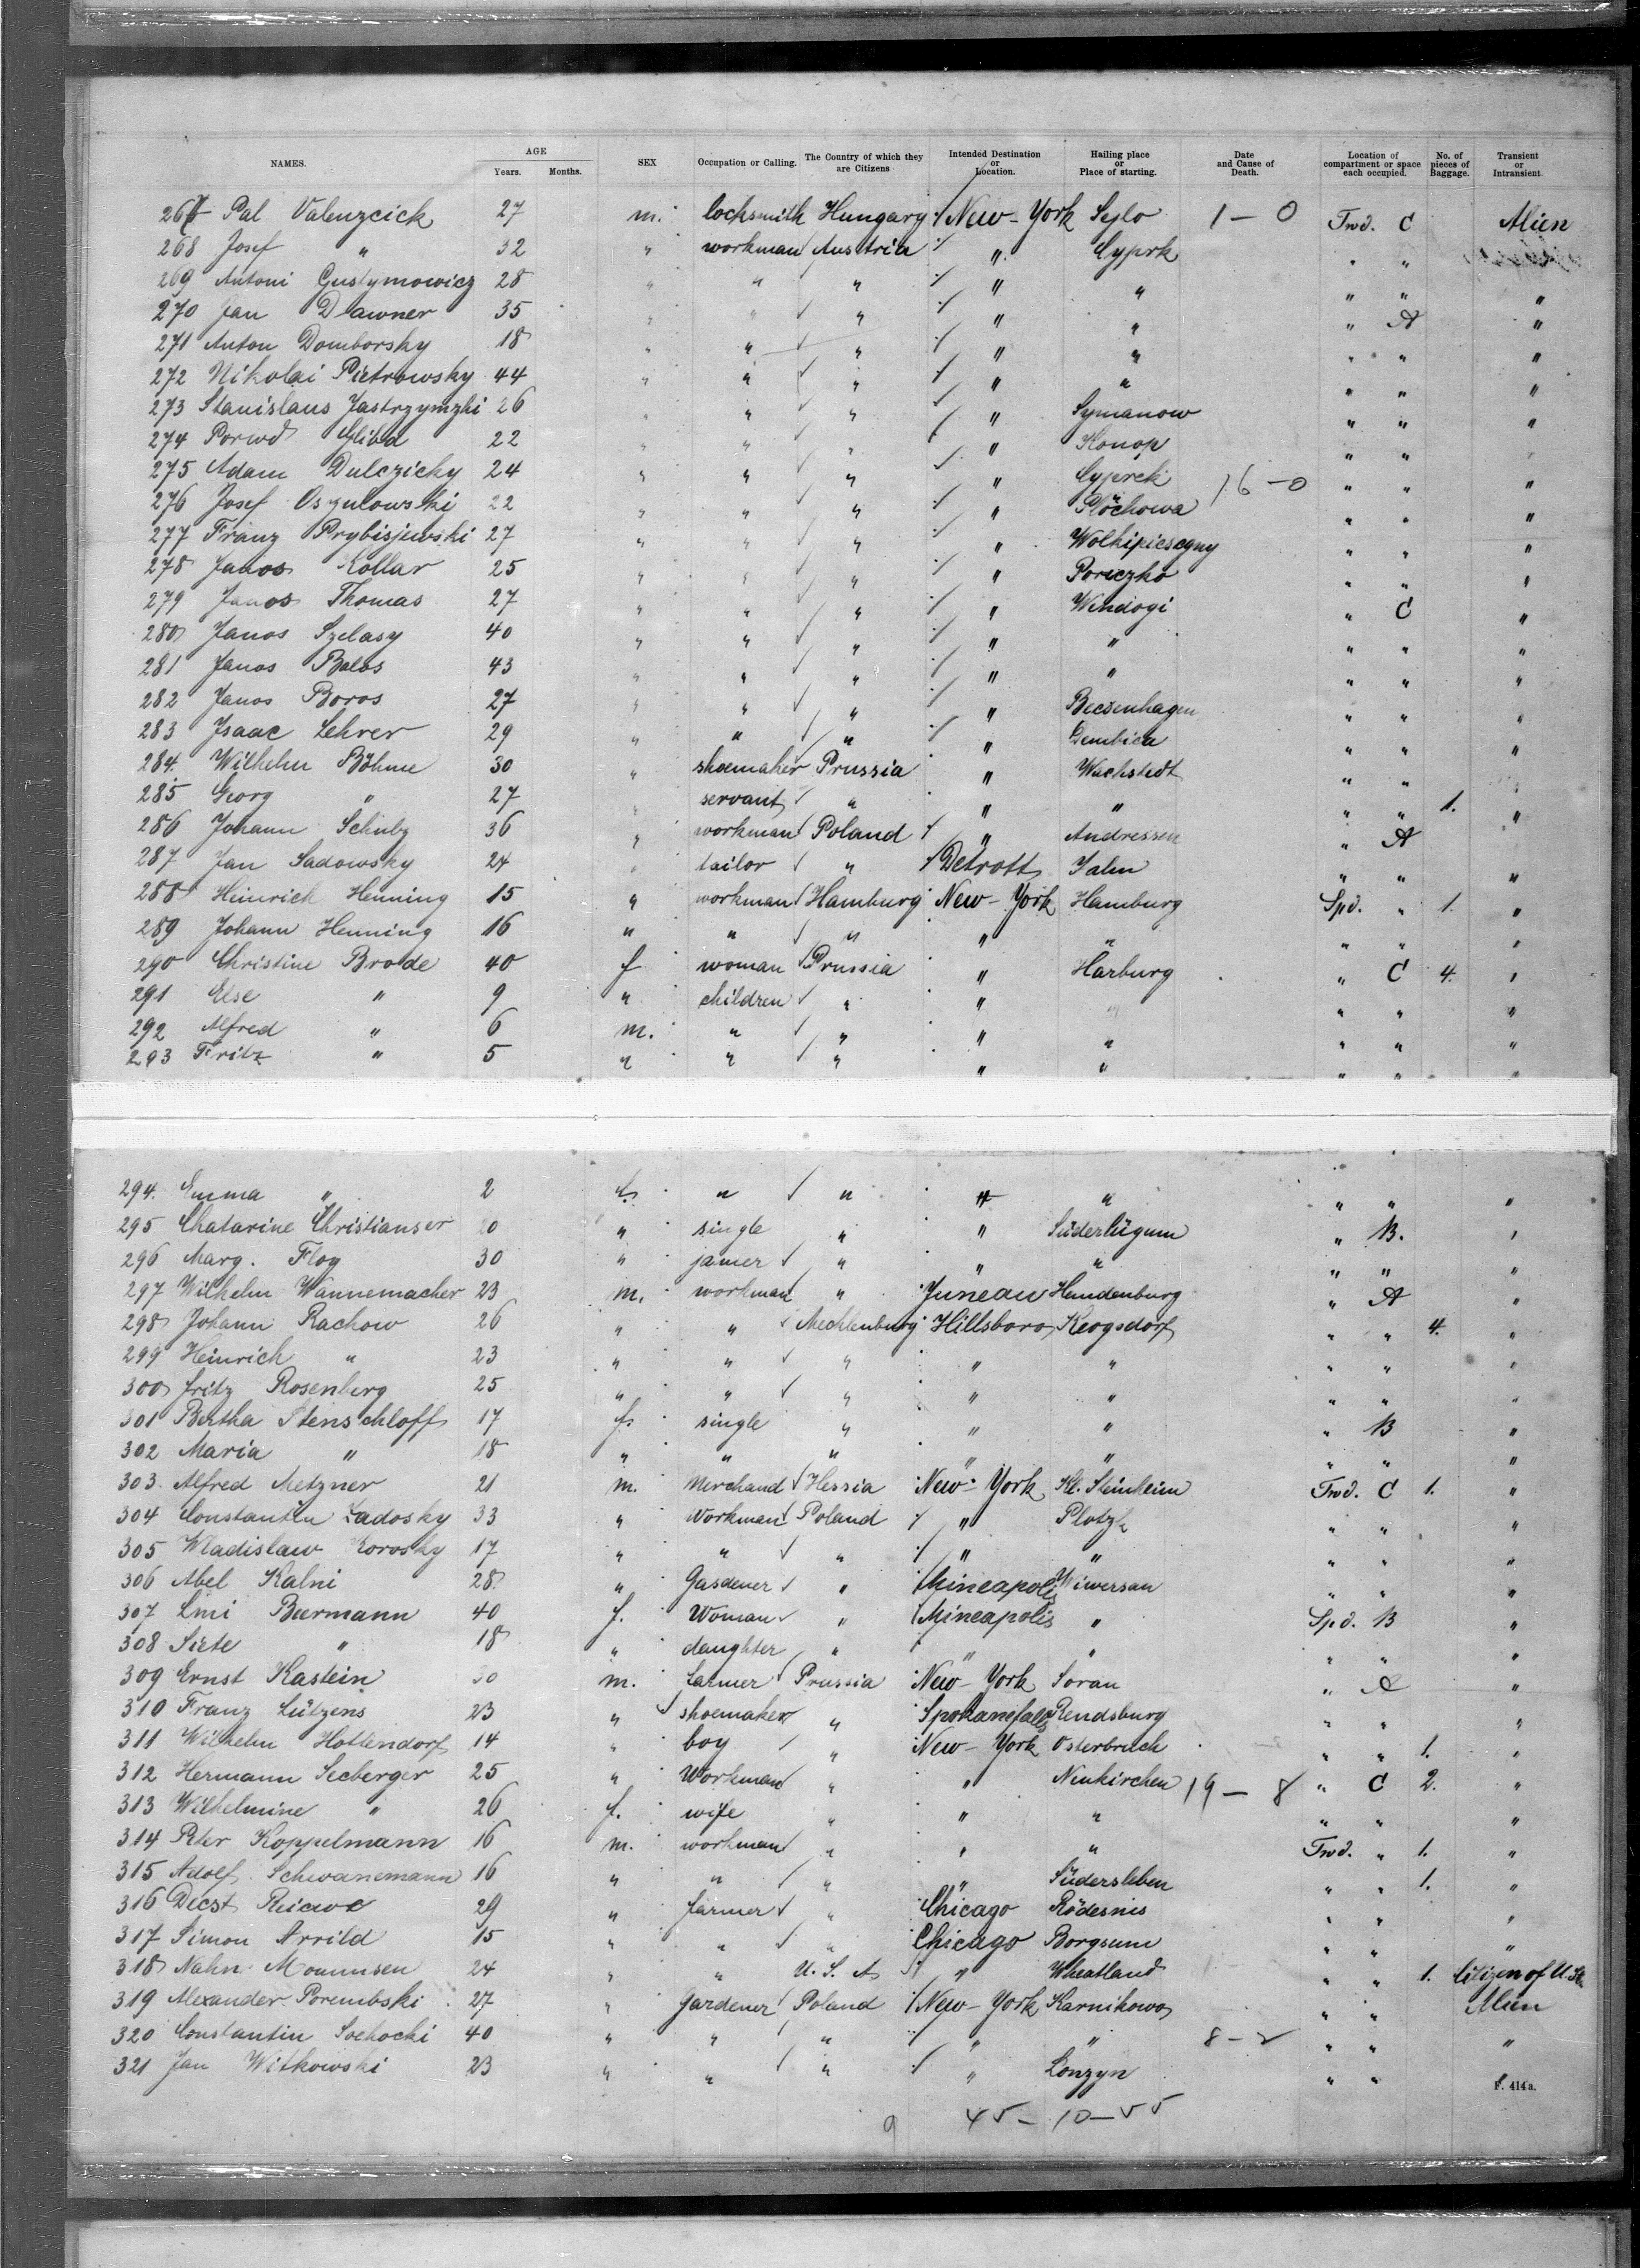 NAMES. AGE Years. Months. SEX Occupation or Calling. The Country of which they are Citizens Intended Destination or Location. Hailing place or Place of starting. Date and Cause of Death. Location of compartment or space each occupied. No. of pieces of Baggage. Transient or Intransient.
267 Pal Valenzcick 27 m. locksmith Hungary New-York Sejlo 1 – 0 Fwd. C Alien
268 Josef " 32 " workman Austria " Cyprk " "
269 Antoni Gustymowicz 28 " " " " " " " "
270 Jan Dawner 35 " " " " " " A "
271 Anton Domborsky 18 " " " " " " " "
272 Nikolai Pietrowsky 44 " " " " " " " "
273 Stanislaus Jastrzymzki 26 " " " " Symanow " " "
274 Porwd Gliba 22 " " " " Konop " " "
275 Adam Dulczicky 24 " " " " Cyprek 16 – 0 " " "
276 Josef Osgulowski 22 " " " " Plöchowa " " "
277 Franz Prybisjewski 27 " " " " Wolkipiesegny " " "
278 Janos Kollar 25 " " " " Poriczko " " "
279 Janos Thomas 27 " " " " Windogi " C "
280 Janos Szelasy 40 " " " " " " " "
281 Janos Balos 43 " " " " " " " "
282 Janos Boros 27 " " " " Beesenhagen " " "
283 Isaac Lehrer 29 " " " " Dembica " " "
284. Wilhelm Böhme 30 " shoemaker Prussia " Wachstedt " " "
285. Georg " 27 " servant " " " " " 1. "
286 Johann Schulz 36 " workman Poland " Andressen " A
287 Jan Sadowsky 24 " tailor " Detrott Jalm " " "
288 Heinrich Henning 15 " workman Hamburg New-York Hamburg Spd. " 1. "
289 Johann Henning 16 " " " " " " " "
290 Christine Brode 40 f woman Prussia " Harburg " C 4. "
291 Else " 9 " children " " " " " "
292 Alfred " 6 m. " " " " " " "
293 Fritz " 5 " " " " " " " "
294. Emma " 2 f. " " " " " " "
295 Chatarine Christianser 20 " single " " Süderlügum " B. "
296 Marg. Floy 30 " jamer " " " " " "
297 Wilhelm Wannemacher 23 m. workman " Juneau Handenburg " A "
298 Johann Rachow 26 " " Mecklenburg Hillsboro Keogsdorf " " 4. "
299 Heinrich " 23 " " " " " " " "
300 Fritz Rosenberg 25 " " " " " " " "
301 Bertha Stenschloff 17 f. single " " " " B "
302 Maria " 18 " " " " " " " "
303. Alfred Metzner 21 m. Merchand Hessia New-York Kl. Steinheim Fwd. C 1. "
304 Constantin Sadosky 33 " Workman Poland " Plotzk " " "
305 Wladislaw Korosky 17 " " " " " " " "
306 Abel Kalni 28 " Gasdener " Mineapolis Wiwersan " " "
307 Lini Beermann 40 f. Woman " Mineapolis " Spd. B "
308 Siete " 18 " daughter " " " " "
309 Ernst Kastein 30 m. farmer Prussia New-York Soran " A "
310 Franz Lützens 23 " shoemaker " Spokanefalls Rendsburg " " "
311 Wilhelm Hottendorf 14 " boy " New-York Osterbruch " " 1. "
312 Hermann Seeberger 25 " Workman " " Neukirchen 19 – 8 " C 2. "
313 Wilhelmine " 26 f. wife " " " " " "
314 Peter Koppelmann 16 m. workman " " " Fwd. " 1. "
315 Adolf Schwanemann 16 " " " " Südersleben " " 1. "
316 Diest Reiawe 29 " farmer " Chicago Rödesnis " " "
317 Simon Arrild 15 " " " Chicago Borgsum " " "
318 Nahn Mommsen 24 " " U. S. A " Wheatland " " 1. Citizen of U. St.
319 Alexander Porembski 27 " Gardener Poland New-York Karnikowo " " Alien
320 Constantin Sochocki 40 " " " " " 8 – 2 " " "
321 Jan Witkowski 23 " " " " Lonzyn " "
F. 414 a.
9 45 – 10 – 55